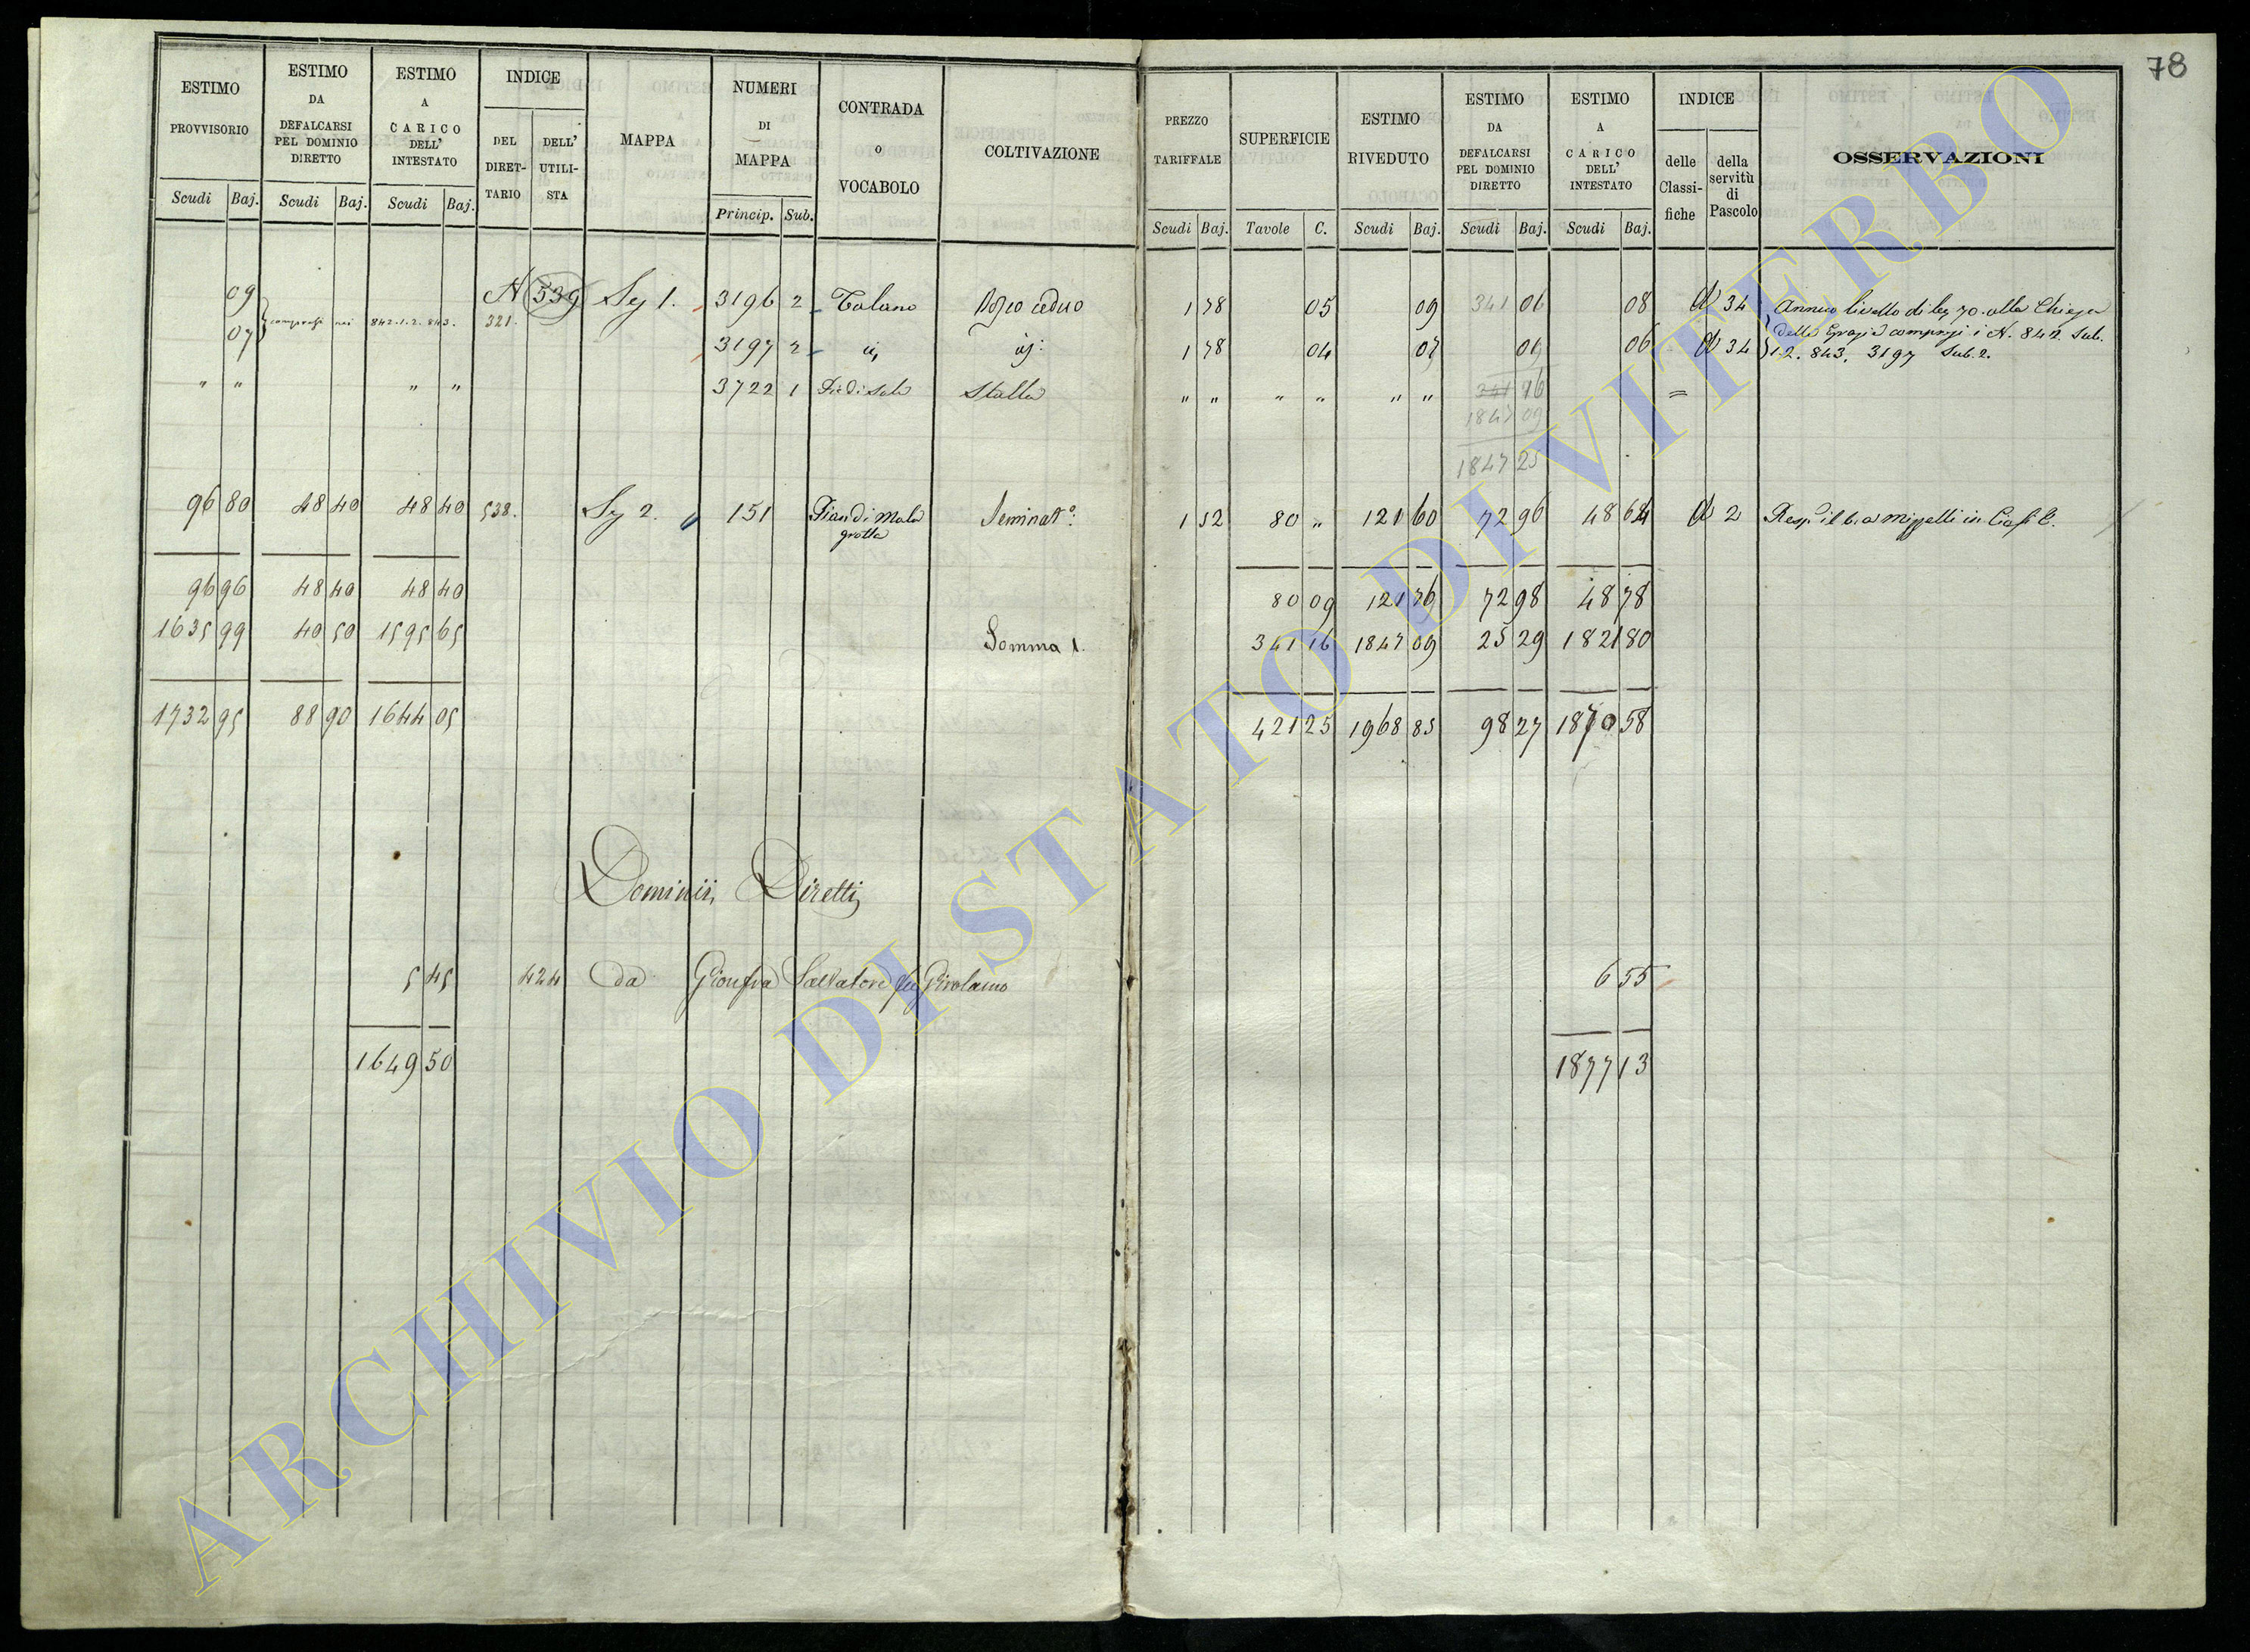 78
ESTIMO PROVVISORIO Scudi Baj.
ESTIMO DA DEFALCARSI PEL DOMINIO DIRETTO Scudi Baj.
ESTIMO A CARICO DELL' INTESTATO Scudi Baj.
INDICE DEL DIRETTARIO DELL' UTILISTA
MAPPA
NUMERI DI MAPPA Princip. Sub.
CONTRADA O VOCABOLO
COLTIVAZIONE
PREZZO TARIFFALE Scudi Baj.
SUPERFICIE Tavole C.
ESTIMO RIVEDUTO Scudi Baj.
ESTIMO DA DEFALCARSI PEL DOMINIO DIRETTO Scudi Baj.
ESTIMO A CARICO DELL' INTESTATO Scudi Baj.
INDICE delle Classifiche della servitù di Pascolo
OSSERVAZIONI
09 N 539 321. Sez 1. 3196 2 Talano ceduo 1 78 05 09 341 01 08 34 Annuo livello di 70. alla Chiesa
07 842.1.2.843. 3197 2 1 78 04 07 01 06 34 delle Grazie compresi i N. 842 Sub.
1.2. 843, 3197 Sub. 2.
" " " " 3722 1 Stalla " " " " " " 341 16 =
1847 09
1847 25
96 80 48 40 48 40 538. Sez 2. 151 Pian di Mala grotta Seminat° 1 52 80 " 121 60 72 96 48 64 2
96 96 48 40 48 40 80 09 121 76 72 98 48 78
1635 99 40 50 1595 65 Somma 1. 341 16 1847 09 25 29 1821 80
1732 95 88 90 1644 05 421 25 1968 85 98 27 1870 58
Dominii Diretti
5 45 424 da Gionfra Salvatore fu Girolamo 6 55
1649 50 1877 13
ARCHIVIO DI STATO DI VITERBO